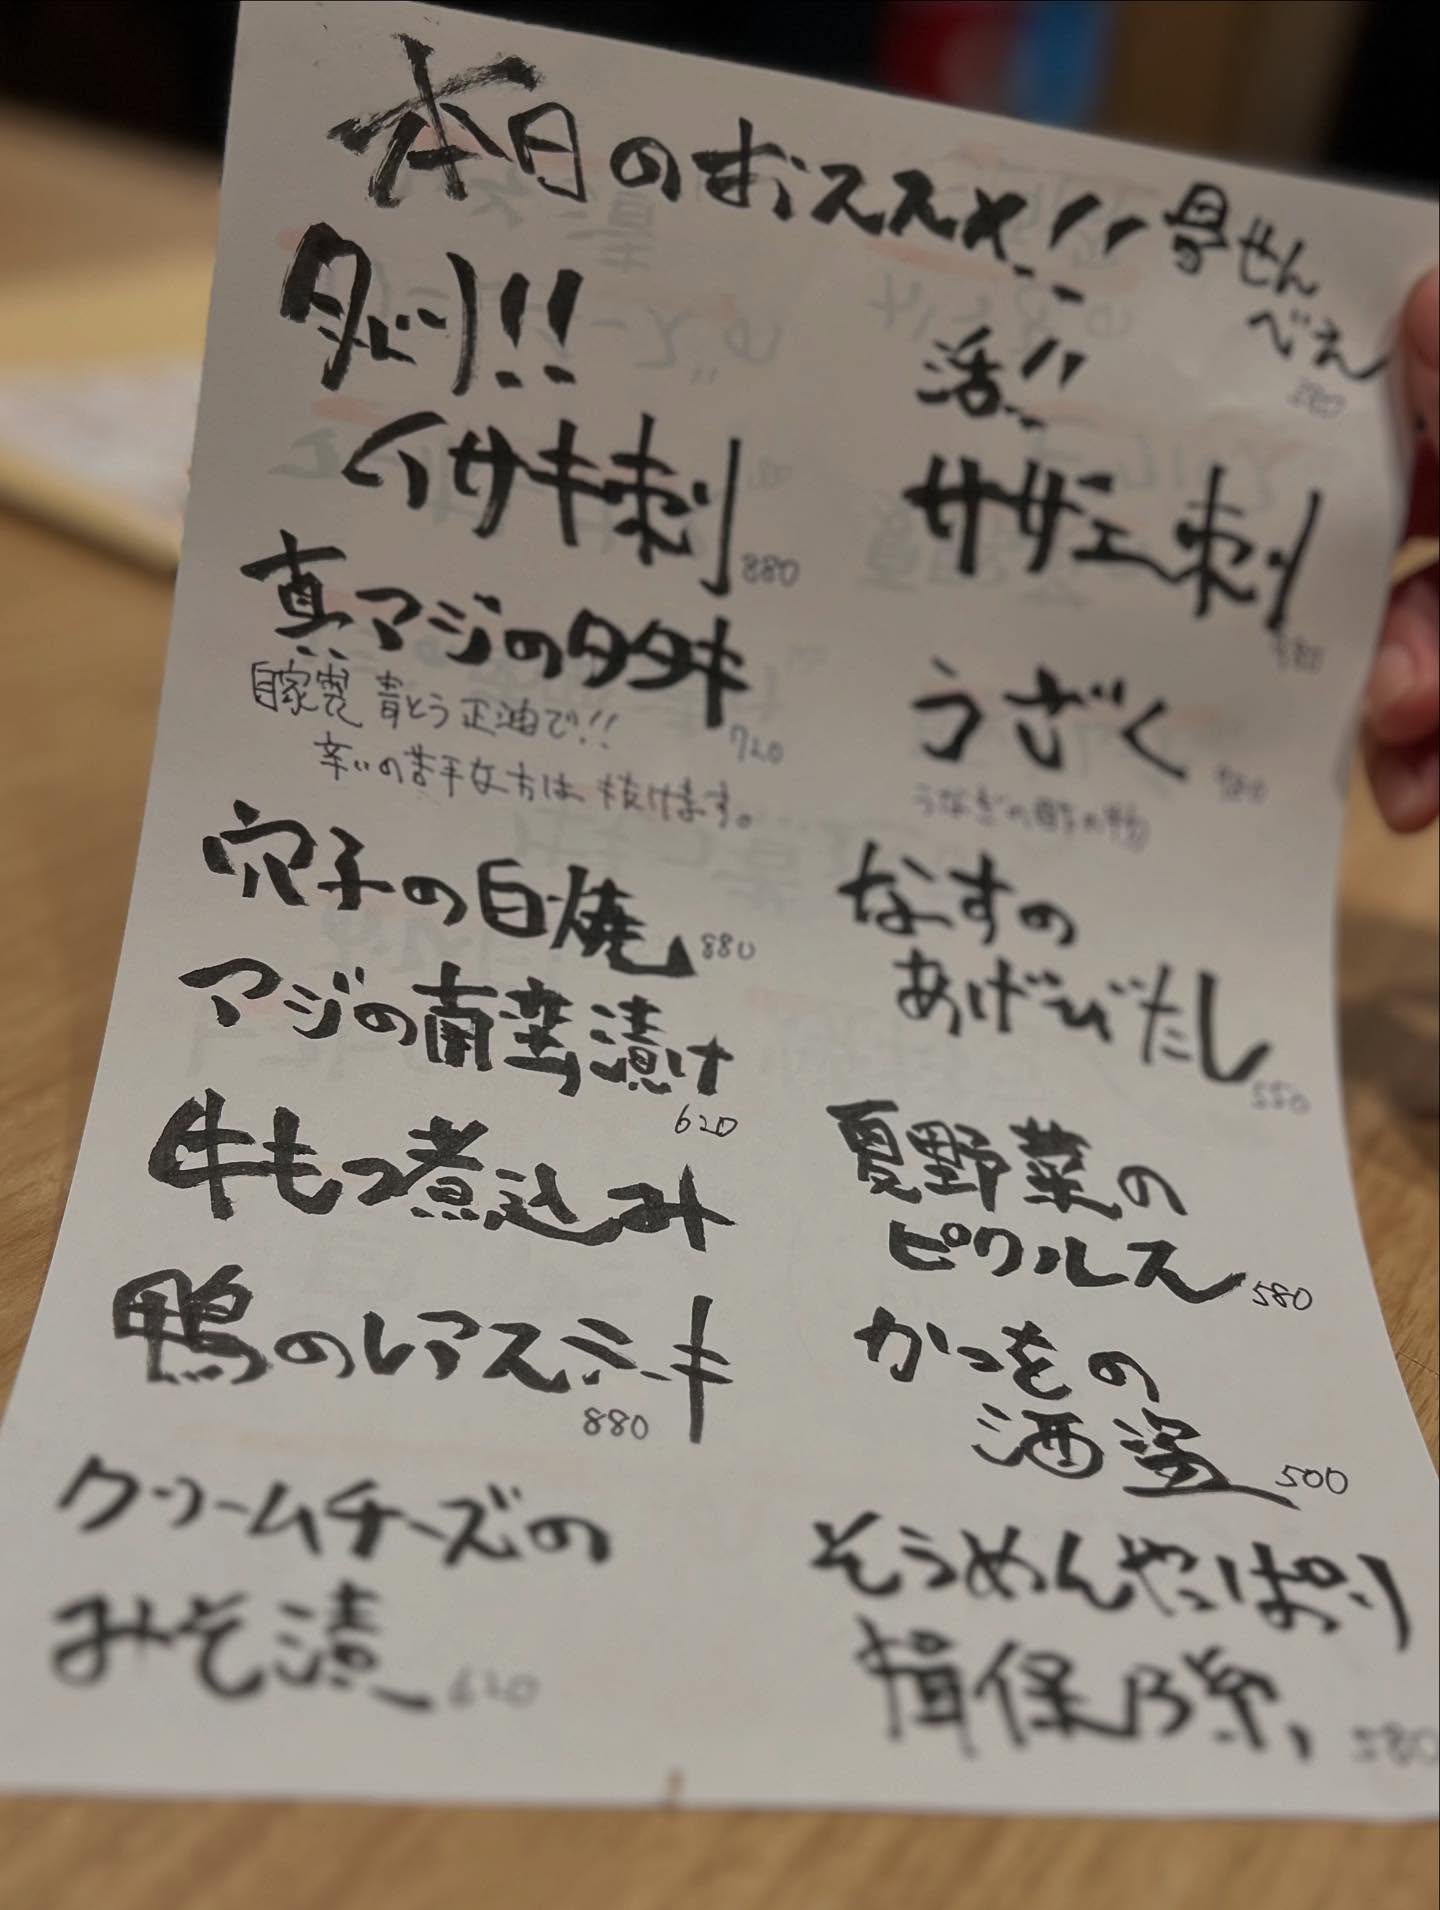 本日のおススメ!!
タバリ!!
イサキ刺 880
真アジのタタキ 720
自家製 青とう正油で!!
辛いの苦手な方は抜けます。
穴子の白焼 880
アジの南蛮漬け 620
牛もつ煮込み
鴨のレアステーキ 880
クリームチーズの
みそ漬 620
骨せん
べえ 380
活!!
サザエ刺
うざく
うなぎの酢の物
なすの
あげびたし 550
夏野菜の
ピクルス 580
かつをの
酒盗 500
そうめんやっぱり
揖保乃糸、 580